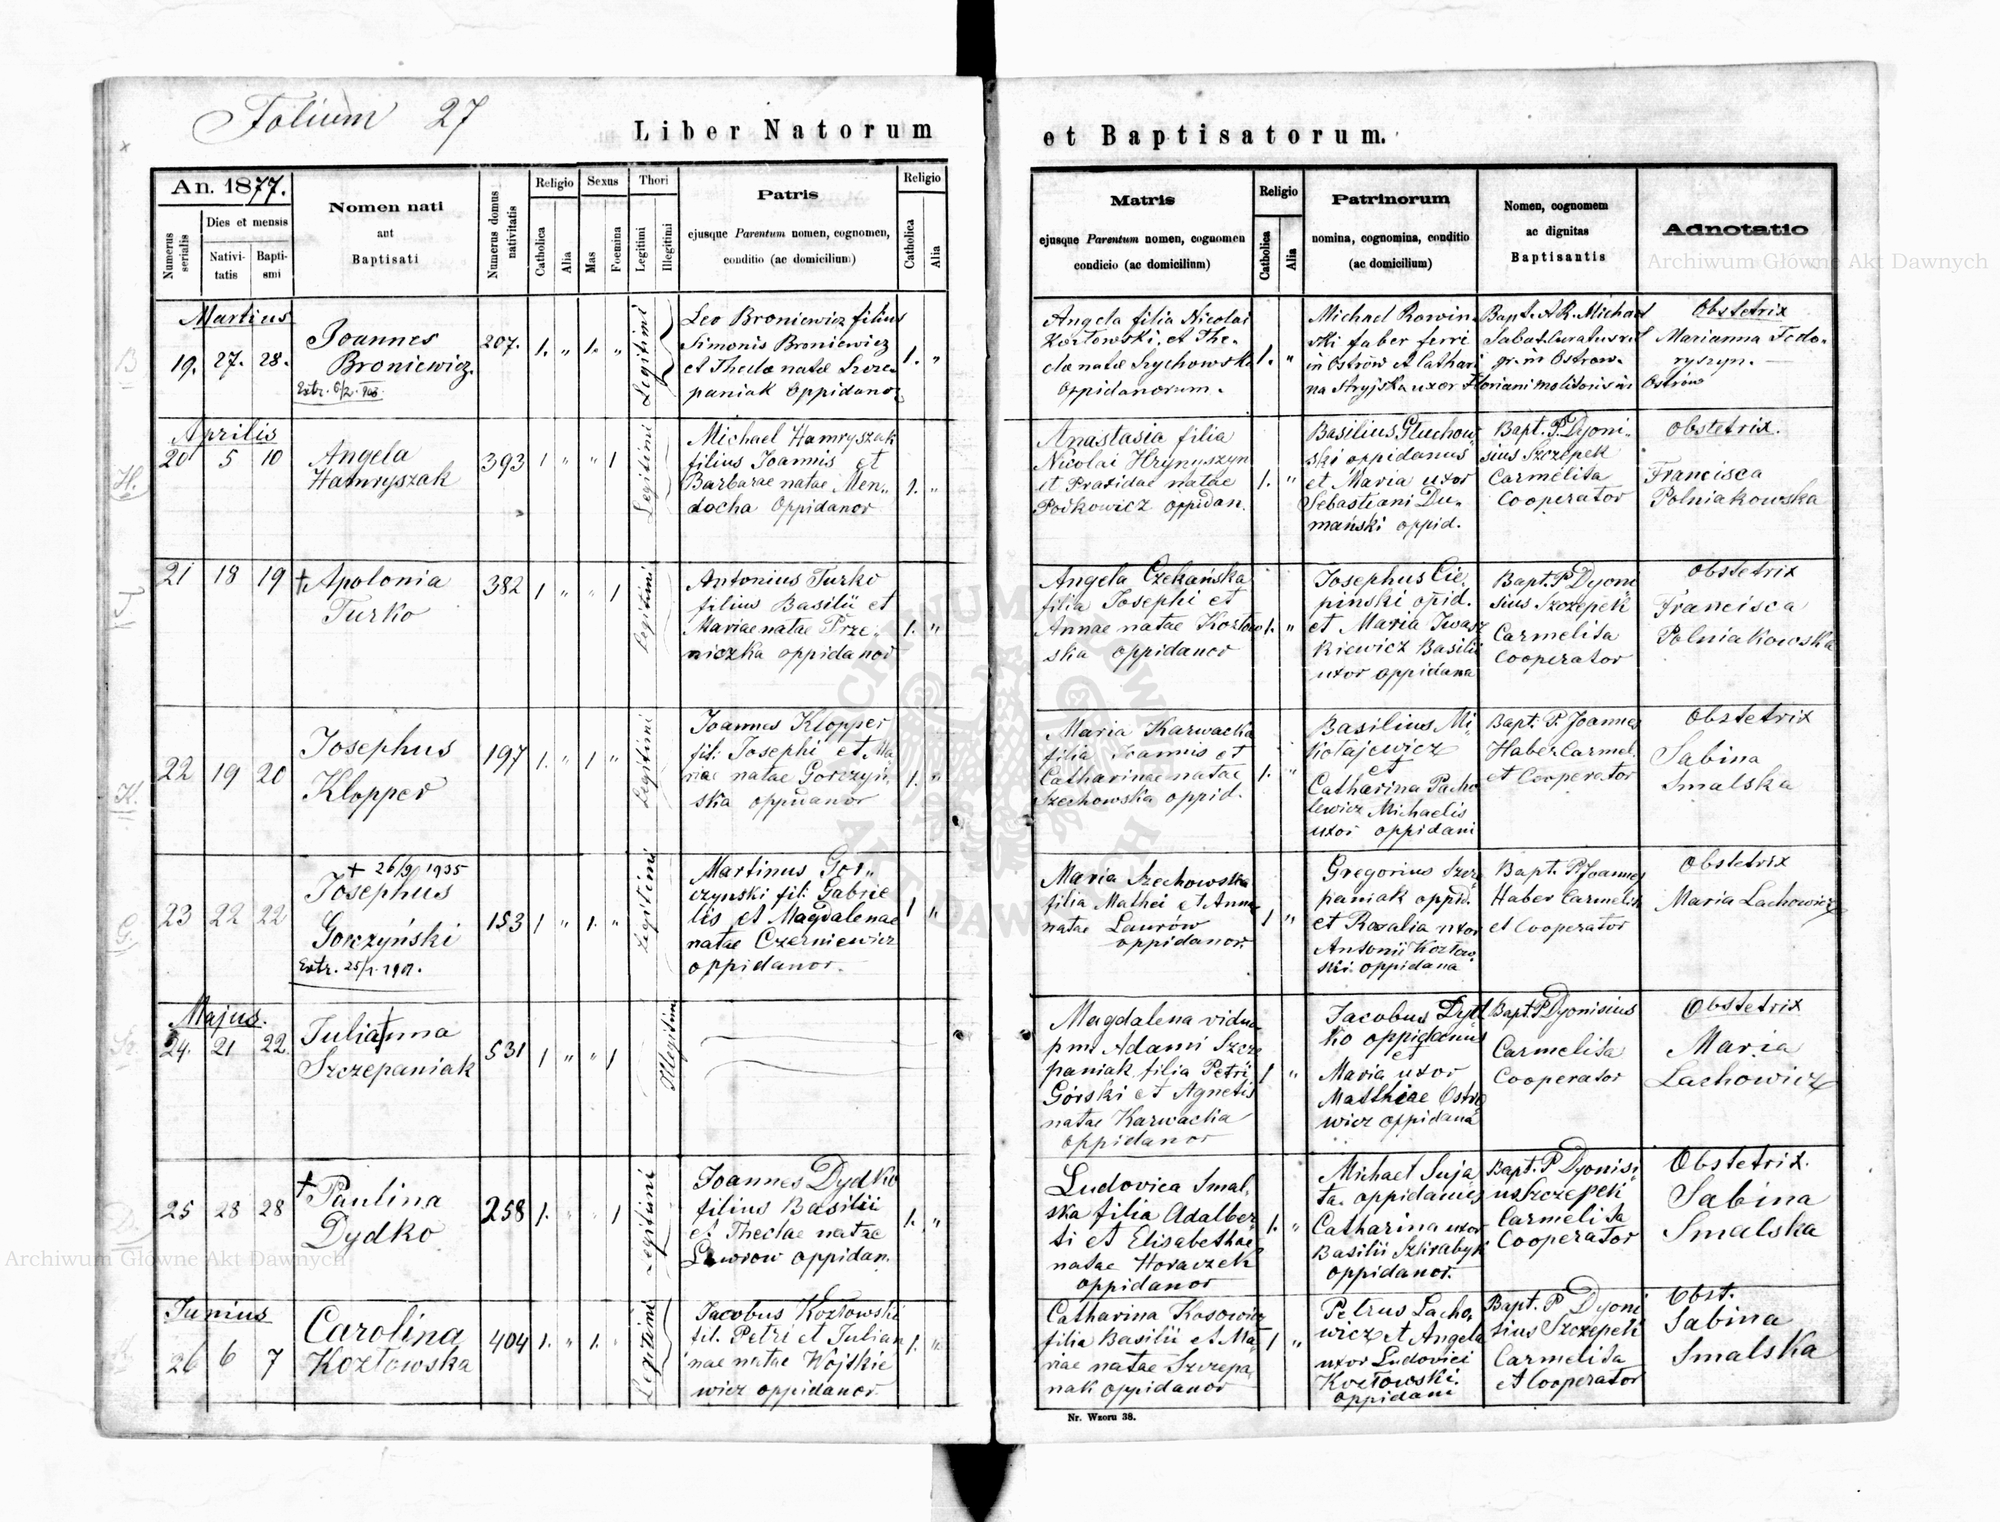 Folium 27
Liber Natorum et Baptisatorum.
An. 1877.
Numerus serialis
Dies et mensis
Nativi-
tatis
Bapti-
smi
Nomen nati
aut
Baptisati
Numerus domus nativitatis
Religio
Catholica
Alia
Sexus
Mas
Foemina
Thori
Legitimi
Illegitimi
Patris
ejusque Parentum nomen, cognomen,
conditio (ac domicilium)
Religio
Catholica
Alia
Matris
ejusque Parentum nomen, cognomen
condicio (ac domicilium)
Religio
Catholica
Alia
Patrinorum
nomina, cognomina, conditio
(ac domicilium)
Nomen, cognomem
ac dignitas
Baptisantis
Adnotatio
Archiwum Główne Akt Dawnych
B
Martius
19. 27. 28.
Joannes
Broniewicz.
Extr.
207. 1. " 1. "
Legitimi
Leo Broniewicz filius
Simonis Broniewicz
et Theclae natae Szcze-
paniak Oppidanor
1. "
Angela filia Nicolai
Kozłowski et The-
clae natae Szychowska
Oppidanorum.
1. "
Michael Rowin-
ski faber ferri
in Ostrów et Cathari
na Stryjska uxor Floriani molitoris in Ostrów
Bapt. A.R. Michael
gr. in Ostrow.
Obstetrix
Marianna Fedo-
ryszyn.
H.
Aprilis
20 5 10
Angela
Hamryszak
393 1 " " 1
Legitimi
Michael Hamryszak
filius Joannis et
Barbarae natae Men-
docha Oppidanor
1. "
Anastasia filia
Nicolai Hrynyszyn
et Praxidae natae
oppidan.
1. "
Basilius Gluchow
ski oppidanus
et Maria uxor
Sebastiani Du-
mański oppid.
Bapt. P. Dyoni-
sius Szczepek
Carmelita
Cooperator
Obstetrix.
Francisca
Polniakowska
21 18 19
† Apolonia
Turko
382 1 " " 1
Legitimi
Antonius Turko
filius Basilii et
Mariae natae Prze-
niczka oppidanor
1. "
Angela Czekańska
filia Josephi et
Annae natae Kozłow
ska oppidanor
1. "
Josephus Cie-
pinski opid.
et Maria Iwasz
kiewicz Basilii
uxor oppidana
Bapt. P Dyoni
sius Szczepek
Carmelita
Cooperator
Obstetrix
Francisca
Polniakowska
K.
22 19 20
Josephus
Klopper
197 1. " 1 "
Legitimi
Joannes Klopper
fil: Josephi et Ma
riae natae Gorczyń-
ska oppidanor
1. "
Maria Karwacka
filia Joannis et
Catharinae natae
Szechowska oppid.
1. "
Basilius Mi
kołajewicz
et
Catharina Pacho
lewicz Michaelis
uxor oppidani
Bapt. P. Joannes
Haber Carmel.
et Cooperator
Obstetrix
Sabina
Smalska
G.
23 22 22
† 26/9 1935
Josephus
Gorczyński
Extr. 25/1 1901.
153 1 " 1. "
Legitimi
Martinus Gor-
czynski fil: Gabrie
lis et Magdalenae
natae Czerniewicz
oppidanor.
1 "
Maria Szechowska
filia Mathei et Annae
natae Laurów
oppidanor.
1 "
Gregorius Szcze
paniak oppid.
et Rozalia uxor
Antonii Kozłow
ski oppidana
Bapt. P. Joannes
Haber Carmelit
et Cooperator
Obstetrix
Maria Lachowicz
Sz.
Majus.
24. 21 22.
Julianna
Szczepaniak
531 1 " " 1
Illegitimi
Magdalena vidua
pm. Adami Szcze
paniak filia Petri
Górski et Agnetis
natae Karwacka
oppidanor
1 "
Jacobus Dyd
ko oppidanus
et
Maria uxor
Mathiae Ostro
wicz oppidana
Bapt. P Dyonisius
Carmelita
Cooperator
Obstetrix
Maria
Lachowicz
D.
25 28 28
† Paulina
Dydko
258 1. " 1
Legitimi
Joannes Dydko
filius Basilii
et Theclae natae
Lawrow oppidan.
1. "
Ludovica Smal-
ska filia Adalber-
ti et Elisabethae
natae Horaczek
oppidanor
1. "
Michael Suja
ta oppidanus
Catharina uxor
Basilii
oppidanor.
Bapt. P Dyonisi
us Szczepek
Carmelita
Cooperator
Obstetrix.
Sabina
Smalska
K.
Junius
26 6 7
Carolina
Kozłowska
404 1. " 1. "
Legitimi
Jacobus Kozłowski
fil. Petri et Julian
nae natae Wojtkie
wicz oppidanor.
1. "
Catharina Kosowicz
filia Basilii et Ma
riae natae Szczepa
niak oppidanor
1 "
Petrus Lacho-
wicz et Angela
uxor Ludovici
Kozłowski
oppidani
Bapt. P Dyoni
sius Szczepek
Carmelita
et Cooperator
Obst.
Sabina
Smalska
Nr. Wzoru 38.
Archiwum Główne Akt Dawnych
ARCHIWUM GŁÓWNE AKT DAWNYCH